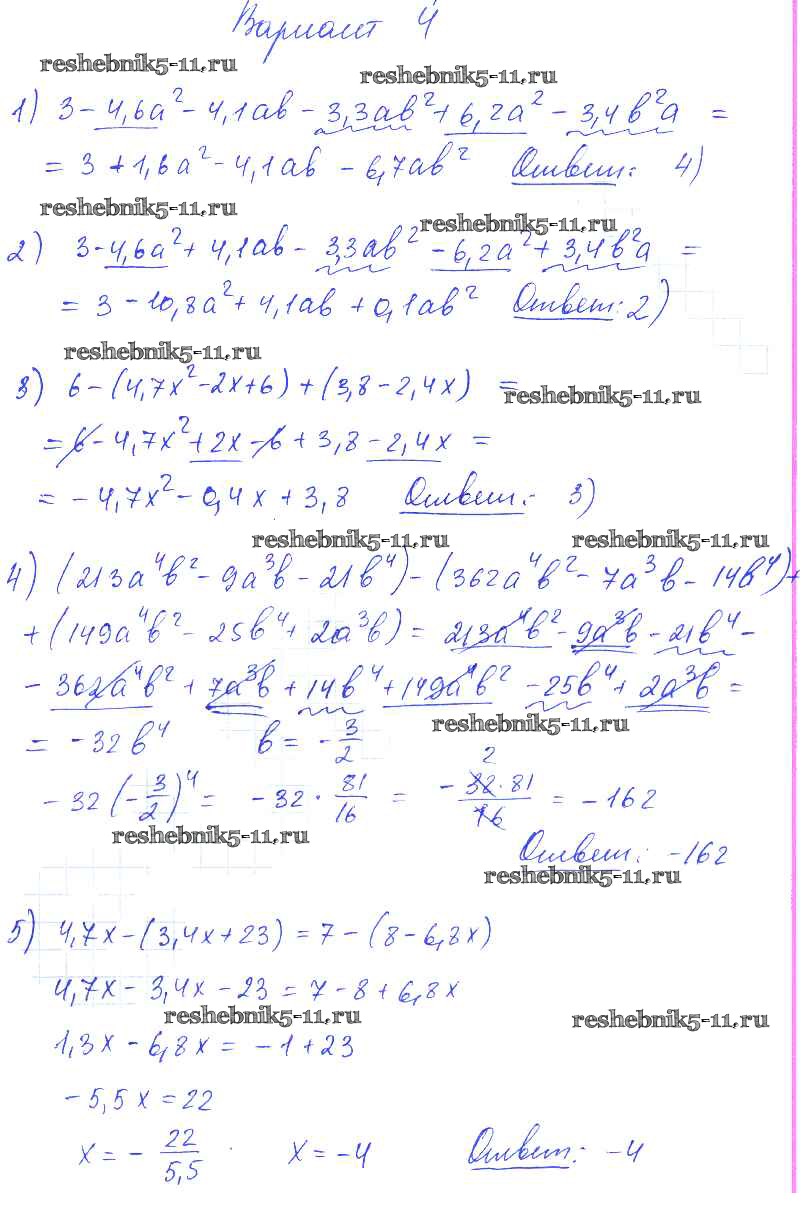 Вариант 4
reshebnik5-11.ru
reshebnik5-11.ru
1) 3 - 4,6a² - 4,1ab - 3,3ab² + 6,2a² - 3,4b²a =
= 3 + 1,6a² - 4,1ab - 6,7ab² Ответ: 4)
reshebnik5-11.ru
reshebnik5-11.ru
2) 3 - 4,6a² + 4,1ab - 3,3ab² - 6,2a² + 3,4b²a =
= 3 - 10,8a² + 4,1ab + 0,1ab² Ответ: 2)
reshebnik5-11.ru
3) 6 - (4,7x² - 2x + 6) + (3,8 - 2,4x) =
reshebnik5-11.ru
= 6 - 4,7x² + 2x - 6 + 3,8 - 2,4x =
= - 4,7x² - 0,4x + 3,8 Ответ: 3)
reshebnik5-11.ru
reshebnik5-11.ru
4) (213a⁴b² - 9a³b - 21b⁴) - (362a⁴b² - 7a³b - 14b⁴) +
+ (149a⁴b² - 25b⁴ + 2a³b) = 213a⁴b² - 9a³b - 21b⁴ -
- 362a⁴b² + 7a³b + 14b⁴ + 149a⁴b² - 25b⁴ + 2a³b =
reshebnik5-11.ru
= - 32b⁴ b = - 3/2
- 32 (- 3/2)⁴ = - 32 · 81/16 = - 32 · 81/16 2 = - 162
reshebnik5-11.ru
Ответ: -162
reshebnik5-11.ru
5) 4,7x - (3,4x + 23) = 7 - (8 - 6,8x)
4,7x - 3,4x - 23 = 7 - 8 + 6,8x
reshebnik5-11.ru
reshebnik5-11.ru
1,3x - 6,8x = - 1 + 23
- 5,5x = 22
x = - 22/5,5 x = -4 Ответ: -4